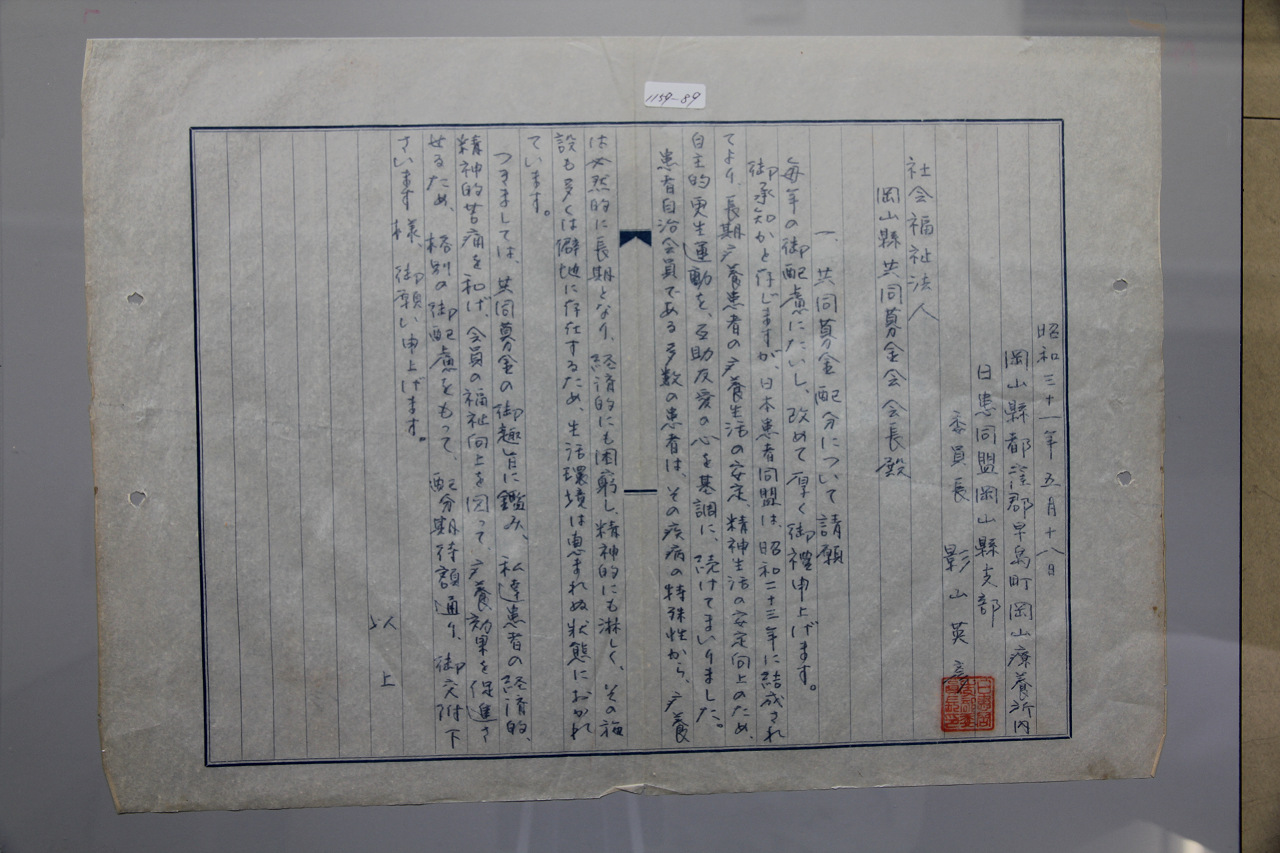 1159-89
昭和三十一年五月十八日
岡山縣都窪郡早島町岡山療養所内
日患同盟岡山縣支部
委員長 影山英彦
社会福祉法人
岡山縣共同募金会会長殿
一、共同募金配分について請願
毎年の御配慮にたいし、改めて厚く御禮申上げます。
御承知かと存じますが、日本患者同盟は昭和二十三年に結成され
てより、長期療養患者の療養生活の安定、精神生活の安定向上のため、
自主的更生運動を、互助友愛の心を基調に、続けてまいりました。
患者自治会員である多数の患者は、その疾病の特殊性から、療養
は必然的に長期となり、経済的にも困窮し、精神的にも淋しく、その施
設も多くは僻地に存在するため、生活環境は恵まれぬ状態におかれ
ています。
つきましては、共同募金の御趣旨に鑑み、私達患者の経済的、
精神的苦痛を和げ、会員の福祉向上を図って、療養効果を促進さ
せるため、格別の御配慮をもって、配分期待額通り、御交附下
さいます様、御願い申上げます。
以上